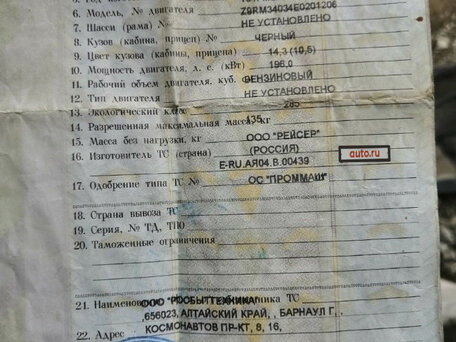 6. Модель, № двигателя Z9RM34034E0201206
7. Шасси (рама) № НЕ УСТАНОВЛЕНО
8. Кузов (кабина, прицеп) №
9. Цвет кузова (кабины, прицепа) ЧЕРНЫЙ
10. Мощность двигателя, л. с. (кВт) 14,3 (10,5)
11. Рабочий объем двигателя, куб. 196,0
12. Тип двигателя БЕНЗИНОВЫЙ
13. Экологический класс НЕ УСТАНОВЛЕНО
14. Разрешенная максимальная масса, кг 285
15. Масса без нагрузки, кг 135
16. Изготовитель ТС (страна) ООО "РЕЙСЕР"
(РОССИЯ)
auto.ru
17. Одобрение типа ТС № E-RU.АЯ04.В.00439
ОС "ПРОММАШ"
18. Страна вывоза ТС
19. Серия, № ТД, ТПО
20. Таможенные ограничения
21. Наименование собственника ТС
ООО "РОСБЫТТЕХНИКА"
,656023, АЛТАЙСКИЙ КРАЙ, , БАРНАУЛ Г, ,
22. Адрес КОСМОНАВТОВ ПР-КТ, 8, 16,